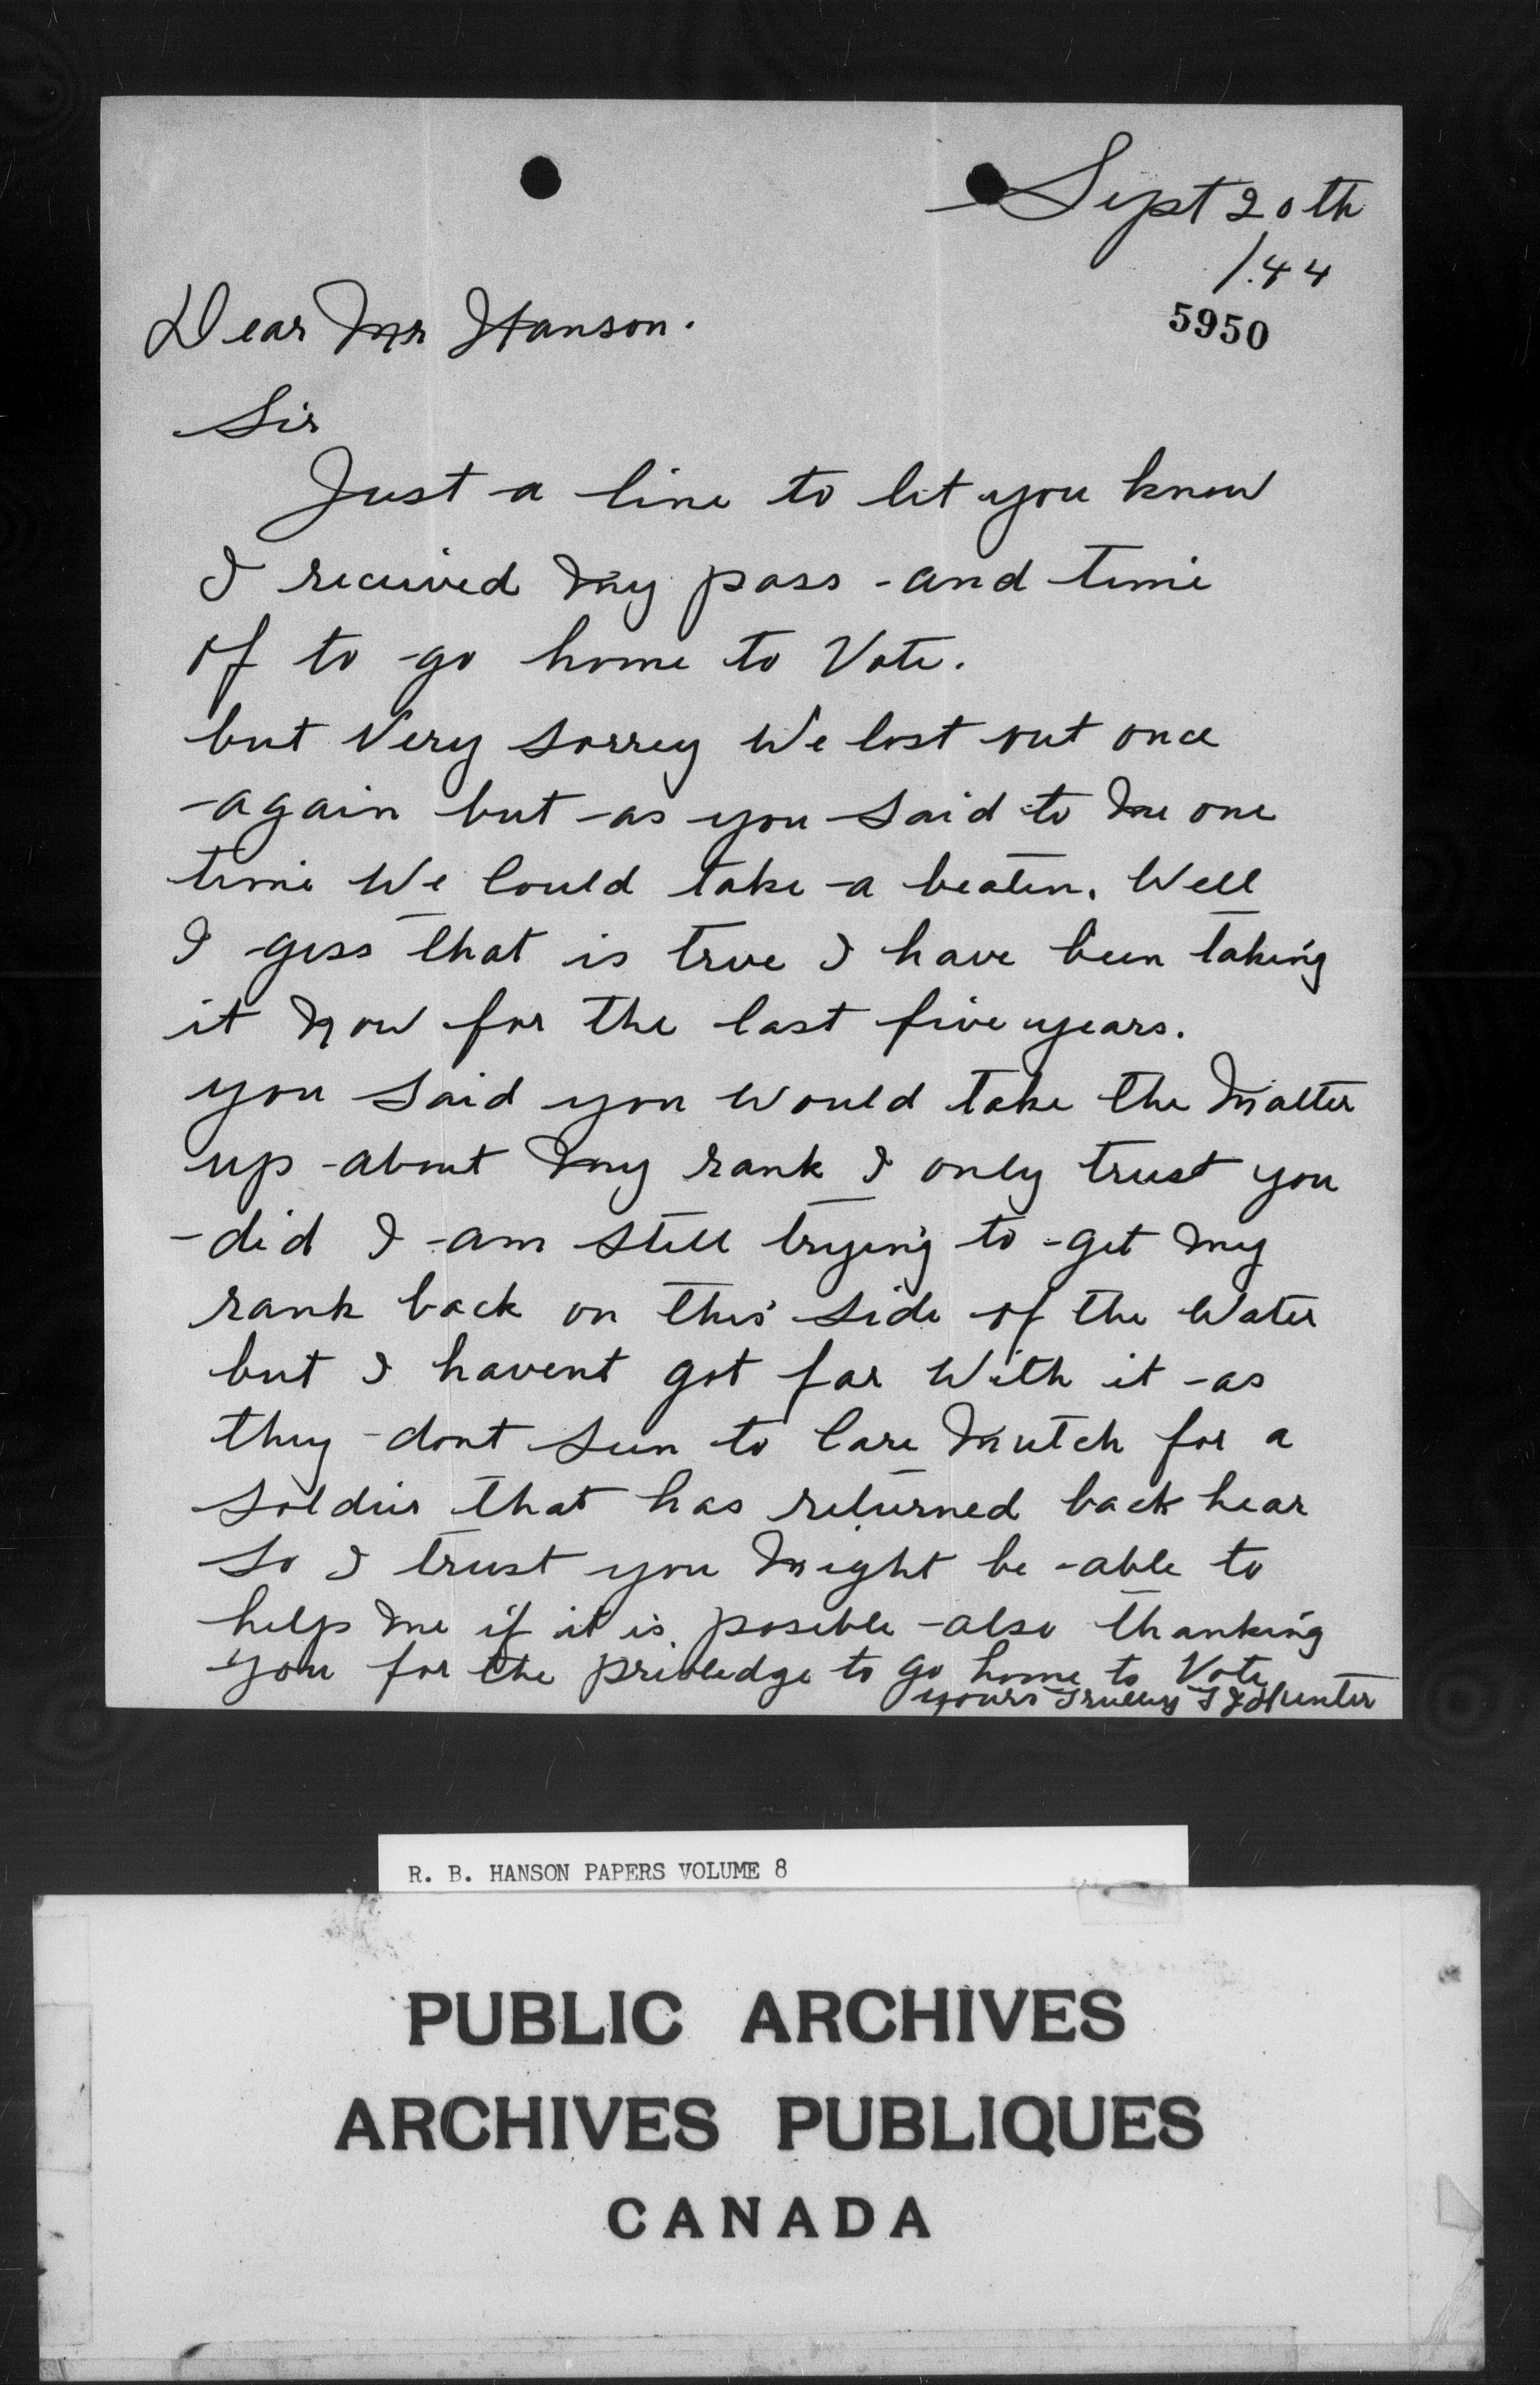 Sept 20th
/.44
5950
Dear Mr Hanson.
Sir
Just a line to let you know
I received my pass and time
of to go home to Vote.
but Very sorrey We lost out once
again but as you said to me one
time We Could take a beaten. Well
I gess that is true I have been taking
it now for the last five years.
you said you would take the matter
up about my rank I only trust you
did I am still trying to get my
rank back on this side of the Water
but I havent got far With it as
they dont seem to Care mutch for a
soldier that has returned back hear
so I trust you might be able to
help me if it is posible also thanking
you for the priviledge to go home to Vote
yours Trulley Hunter
R. B. HANSON PAPERS VOLUME 8
PUBLIC ARCHIVES
ARCHIVES PUBLIQUES
CANADA